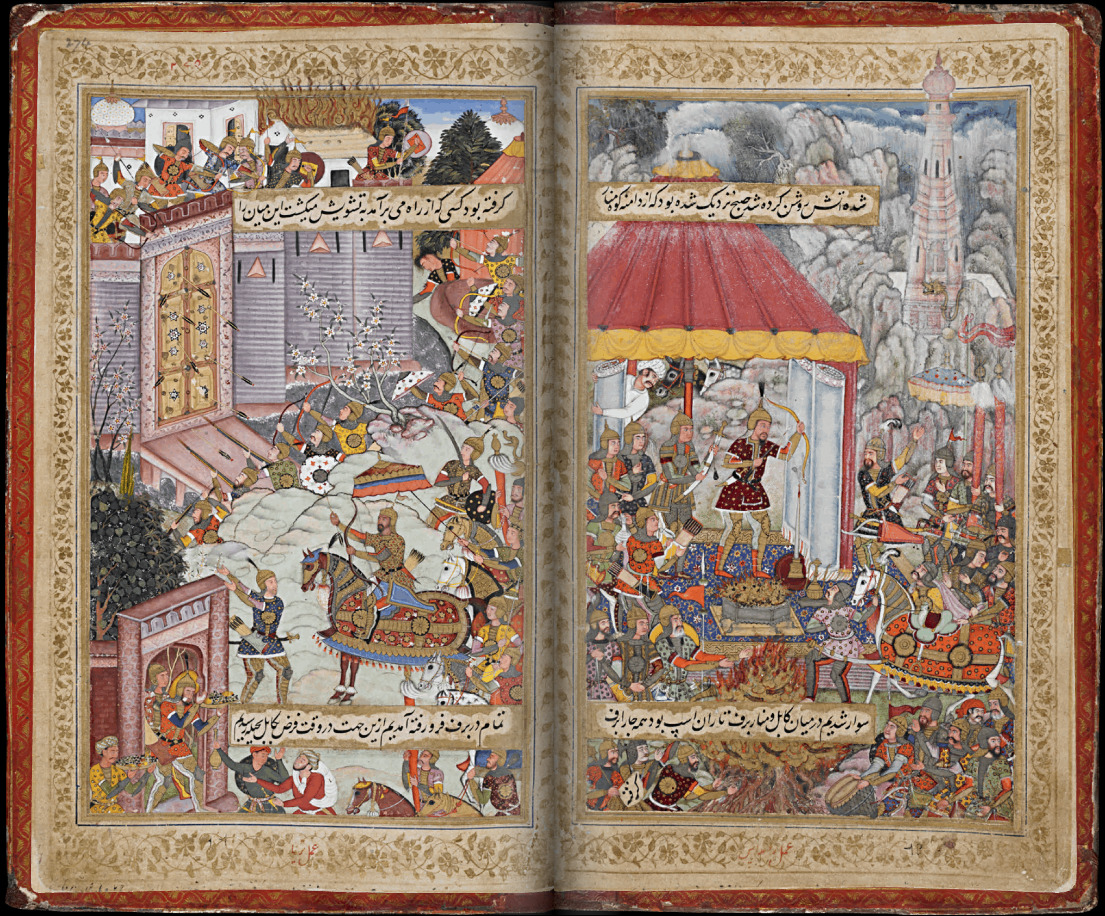 شده آتش روشن کرده شد صبح نزدیک شده بود که از دامنه کوه منار
سوار شدیم در میان کابل و منار برف تا ران اسپ بود همه جا را برف
گرفته بود کسی که از راه می برآمد به تشویش میگشت این میان را
تمام در برف فرو رفته آمدیم ازین جهت در وقت فرض کابل
عمل
عمل